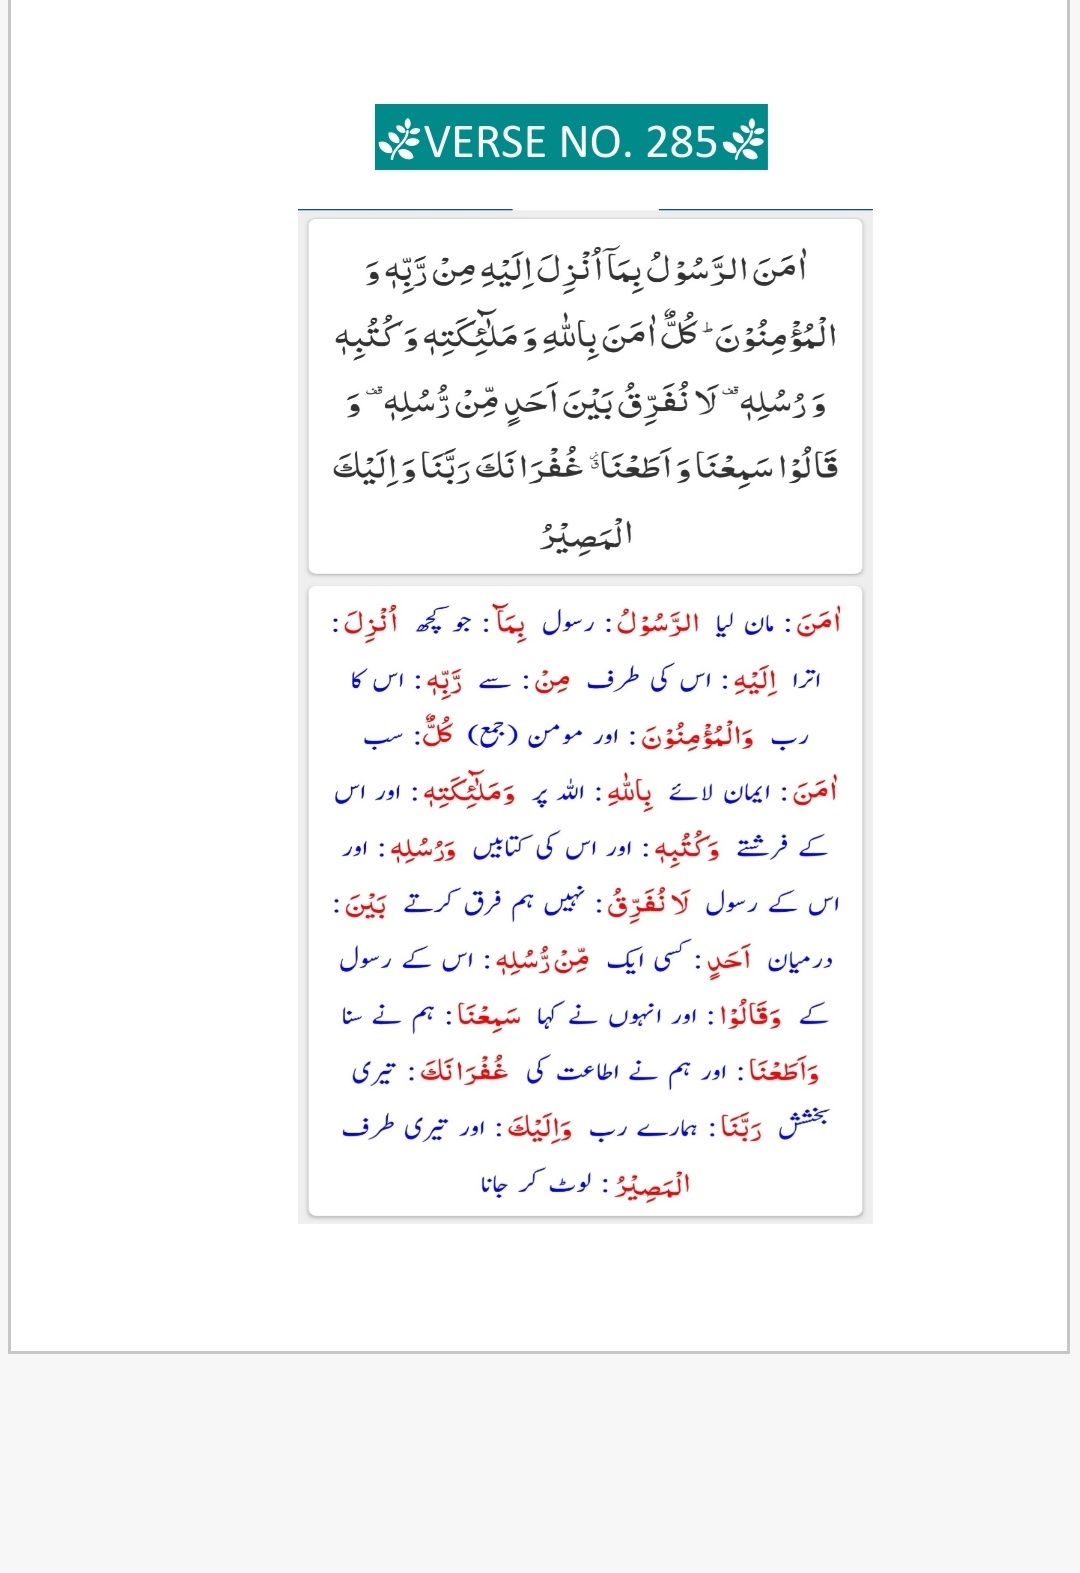 VERSE NO. 285
اٰمَنَ الرَّسُوْلُ بِمَاۤ اُنْزِلَ اِلَيْهِ مِنْ رَّبِّهٖ وَ
الْمُؤْمِنُوْنَ ؕ كُلٌّ اٰمَنَ بِاللّٰهِ وَ مَلٰٓىِٕكَتِهٖ وَ كُتُبِهٖ
وَ رُسُلِهٖ ۫ لَا نُفَرِّقُ بَيْنَ اَحَدٍ مِّنْ رُّسُلِهٖ ۫ وَ
قَالُوْا سَمِعْنَا وَ اَطَعْنَا ٗۗ غُفْرَانَكَ رَبَّنَا وَ اِلَيْكَ
الْمَصِيْرُ
اٰمَنَ : مان لیا الرَّسُوْلُ : رسول بِمَاۤ : جو کچھ اُنْزِلَ :
اترا اِلَيْهِ : اس کی طرف مِنْ : سے رَّبِّهٖ : اس کا
رب وَالْمُؤْمِنُوْنَ : اور مومن (جمع) كُلٌّ : سب
اٰمَنَ : ایمان لائے بِاللّٰهِ : اللہ پر وَمَلٰٓىِٕكَتِهٖ : اور اس
کے فرشتے وَكُتُبِهٖ : اور اس کی کتابیں وَرُسُلِهٖ : اور
اس کے رسول لَا نُفَرِّقُ : نہیں ہم فرق کرتے بَيْنَ :
درمیان اَحَدٍ : کسی ایک مِّنْ رُّسُلِهٖ : اس کے رسول
کے وَقَالُوْا : اور انہوں نے کہا سَمِعْنَا : ہم نے سنا
وَاَطَعْنَا : اور ہم نے اطاعت کی غُفْرَانَكَ : تیری
بخشش رَبَّنَا : ہمارے رب وَاِلَيْكَ : اور تیری طرف
الْمَصِيْرُ : لوٹ کر جانا